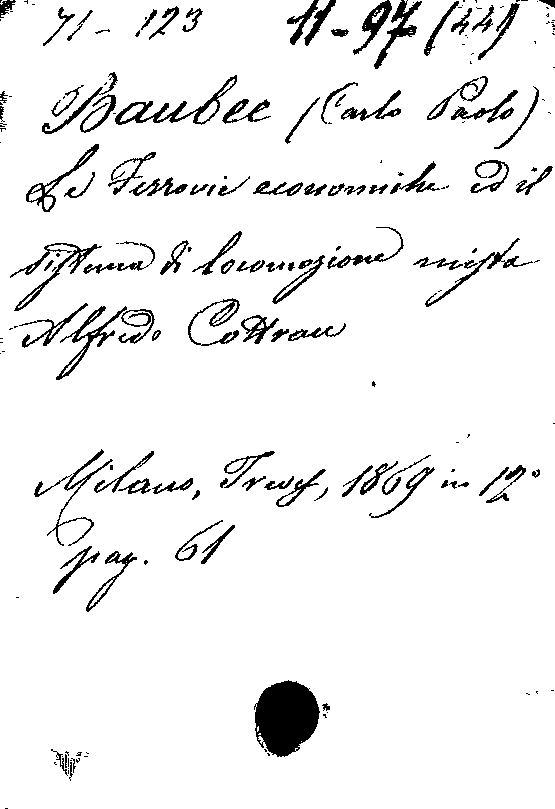 71-123 11-97 (44)
Baubee (Carlo Paolo)
Le Ferrovie economiche ed il
sistema di locomozione mista
Alfredo Cottrau
Milano, Treves, 1869 in 12°
pag. 61